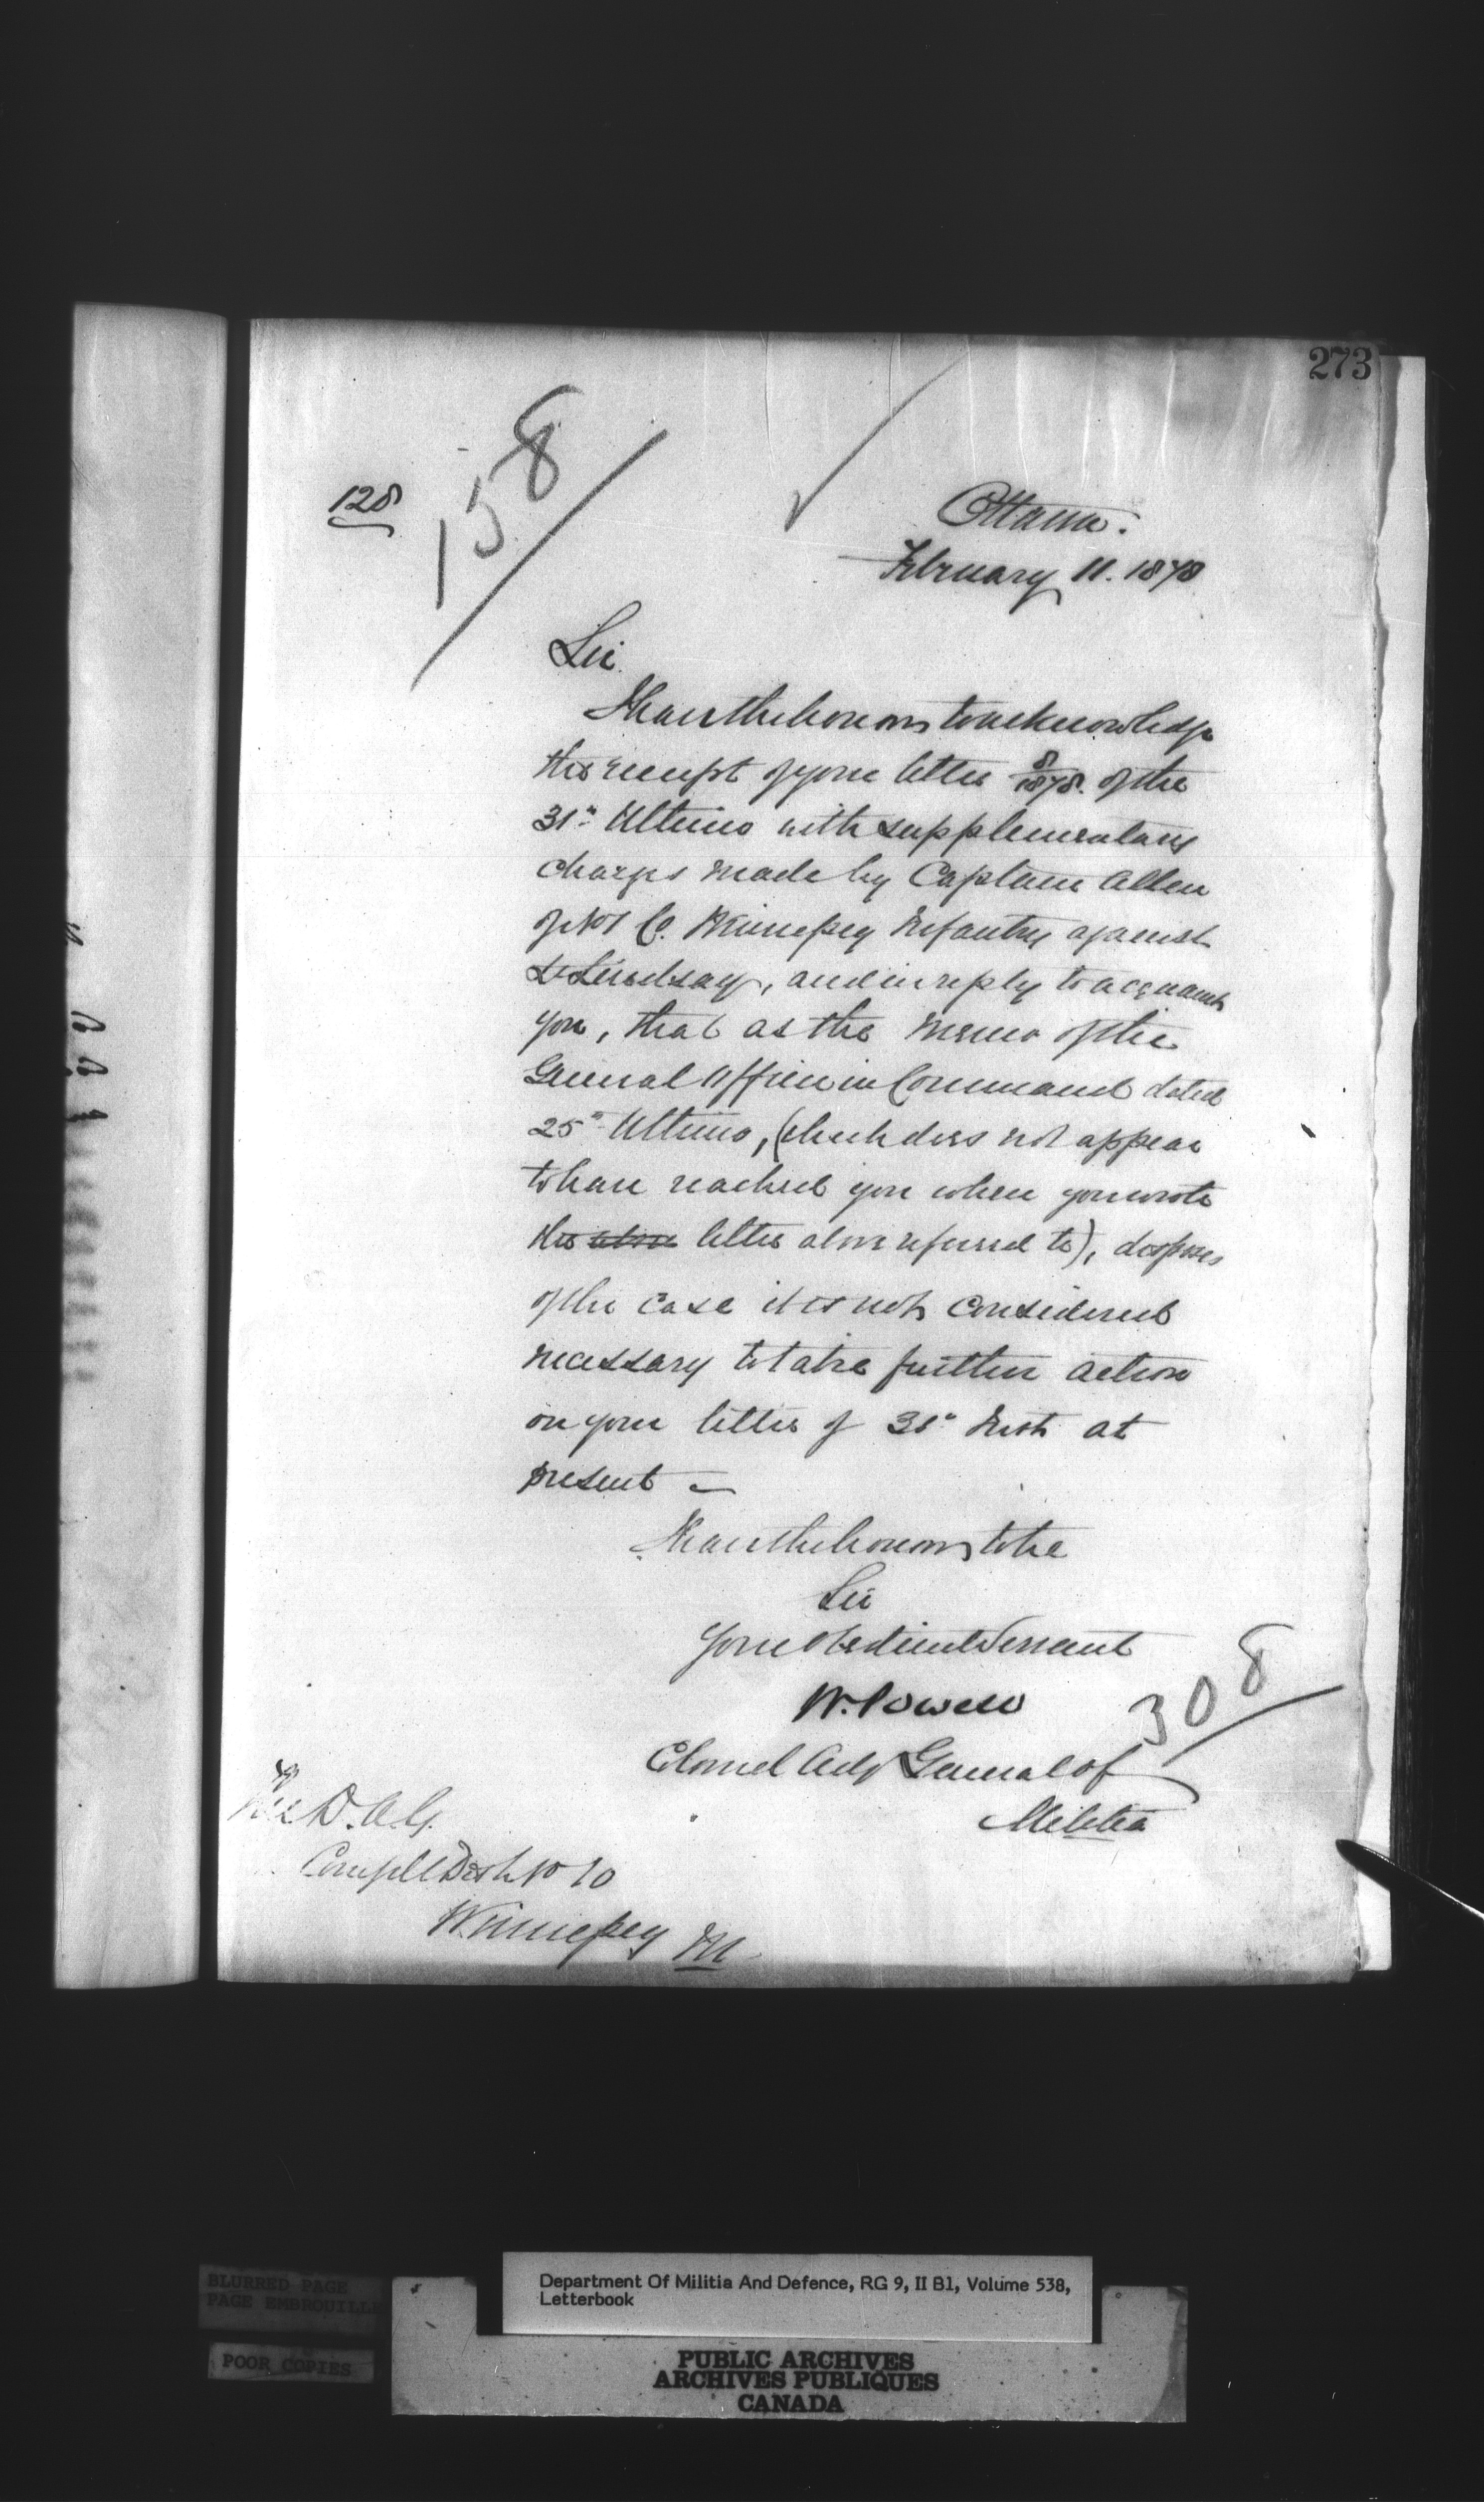 273
158
128
Ottawa.
February 11. 1878
Sir
I have the honour to acknowledge
the receipt of your letter 8/1878. of the
31st Ultimo with supplementary
charges made by Captain Allen
of No 1 Co. Winnepeg Infantry against
Lt Lindsay, and in reply to acquaint
you, that as the memo of the
General Officer in Command dated
25th Ultimo, (which does not appear
to have reached you when you wrote
the above letter above referred to), disposes
of the case it is not considered
necessary to take further action
on your letter of 31st Inst at
present –
I have the honour to be
Sir
Your Obedient Servant
W. Powell
308
Colonel Adjt General of
Militia
The D.A.G.
Comg Mil Dist No 10
Winnepeg M
Department Of Militia And Defence, RG 9, II B1, Volume 538,
Letterbook
BLURRED PAGE
PAGE EMBROUILLE
POOR COPIES
PUBLIC ARCHIVES
ARCHIVES PUBLIQUES
CANADA